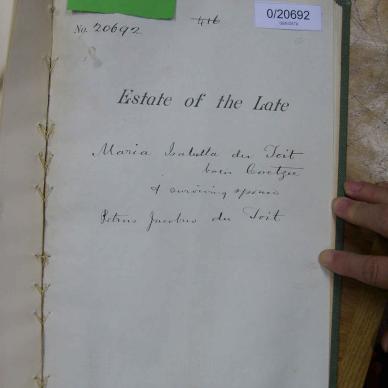 No. 20692
416
0/20692
Estate of the Late
Maria Isabella du Toit
born Coetzee
& surviving spouse
Petrus Jacobus du Toit